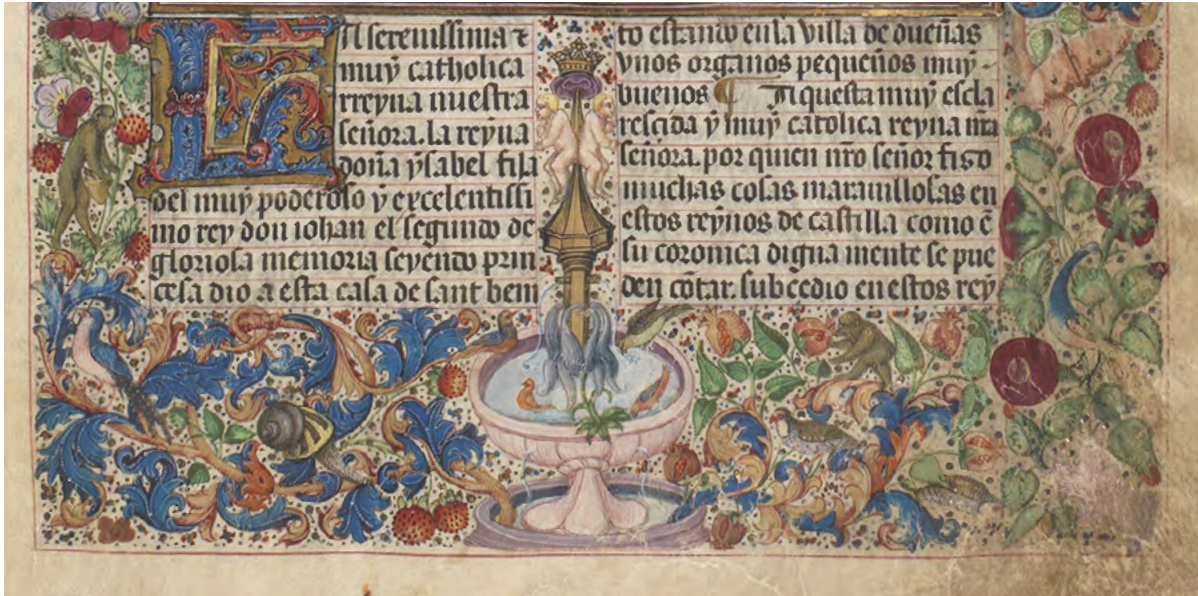 La serenissima ⁊
muẏ catholica
rreyna nuestra
señora. la reẏna
doña ẏsabel fija
del muẏ poderoso ẏ excelentissi
mo rey don iohan el segundo de
gloriosa memoria seyendo prin
cesa dio a esta casa de sant beni
to estando en la villa de dueñas
vnos organos pequeños muẏ
buenos ¶ Aquesta muẏ escla
rescida ẏ muẏ catolica reyna nr̄a
señora. por quien nr̄o señor fiso
muchas cosas marauillosas en
estos reẏnos de castilla como ē
su coronica digna mente se pue
den cōtar. subcedio en estos reẏ